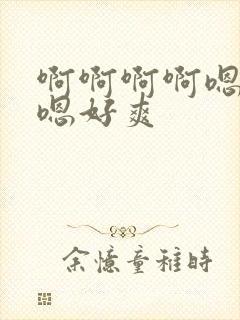 啊啊啊啊嗯
嗯好爽
余憶童稚時